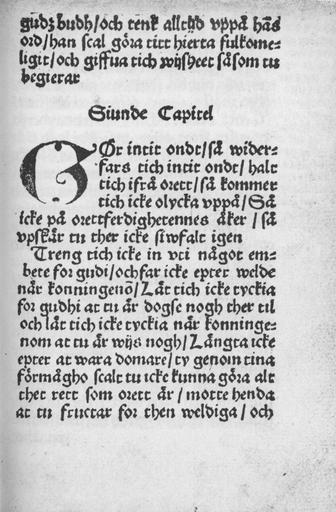 gudz budh/och tenk alltijd vppå hås
ord/han scal göra titt hierta fulkome=
ligit/och giffua tich wijsheet såsom tu
begierar
Siunde Capitel
GÖr intit ondt/så wider=
fars tich intit ondt/halt
tich ifrå orett/så kommer
tich icke olycka vppå/Så
icke på orettferdighetennes åker/så
vpskär tu ther icke siwfalt igen
Treng tich icke in vti något em=
bete for gudi/ochfar icke epter welde
när konningenō/Lät tich icke tyckia
for gudhi at tu är dogse nogh ther til
och lät tich icke tyckia när konninge=
nom at tu är wijs nogh/Långta icke
epter at wara domare/ty genom tina
förmågho scalt tu icke kunna göra alt
thet rett som orett är/motte henda
at tu fructar for then weldiga/och